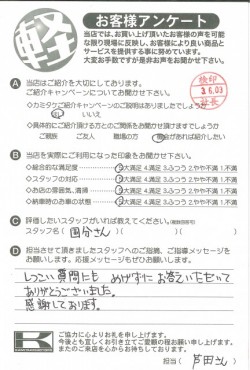 軽
お客様アンケート
当店では、お買い上げ頂いたお客様の声を可能
な限り現場に反映し、お客様により良い商品と
サービスを提供する事に努めています。
大変お手数ですが是非お声をお聞かせ下さい。
A 当店はご紹介を大切にしております。
ご紹介キャンペーンについてお聞かせ下さい。
検印
3.6.03
社長
◇カミタケご紹介キャンペーンのご説明はありましたでしょうか
はい いいえ
◇具体的にご紹介頂ける方とのご関係をお聞かせ頂けますでしょうか
ご親族 ご友人 職場の方 機会があれば紹介したい
B 当店を実際にご利用になった印象をお聞かせ下さい。
◇総合的な満足度 5大満足 4.満足 3.ふつう 2.やや不満 1.不満
◇スタッフの対応 5大満足 4.満足 3.ふつう 2.やや不満 1.不満
◇お店の雰囲気、清掃 5大満足 4.満足 3.ふつう 2.やや不満 1.不満
◇納車時のお車の状態 5大満足 4.満足 3.ふつう 2.やや不満 1.不満
C 評価したいスタッフがいれば教えてください。(複数回答可)
スタッフ名( 国分さん )
D 担当させて頂きましたスタッフへのご指摘、ご指導メッセージを
お願いします。応援メッセージもぜひお願いします。
しつこい質問にも めげずに お答えいただいて
ありがとうございました。
感謝しております。
K
ご協力に心よりお礼を申し上げます。
今後とも宜しくお引き立てご愛顧の程お願い申し上げます。
またのご来店を心からお待ちしております。
担当( 芦田さん )